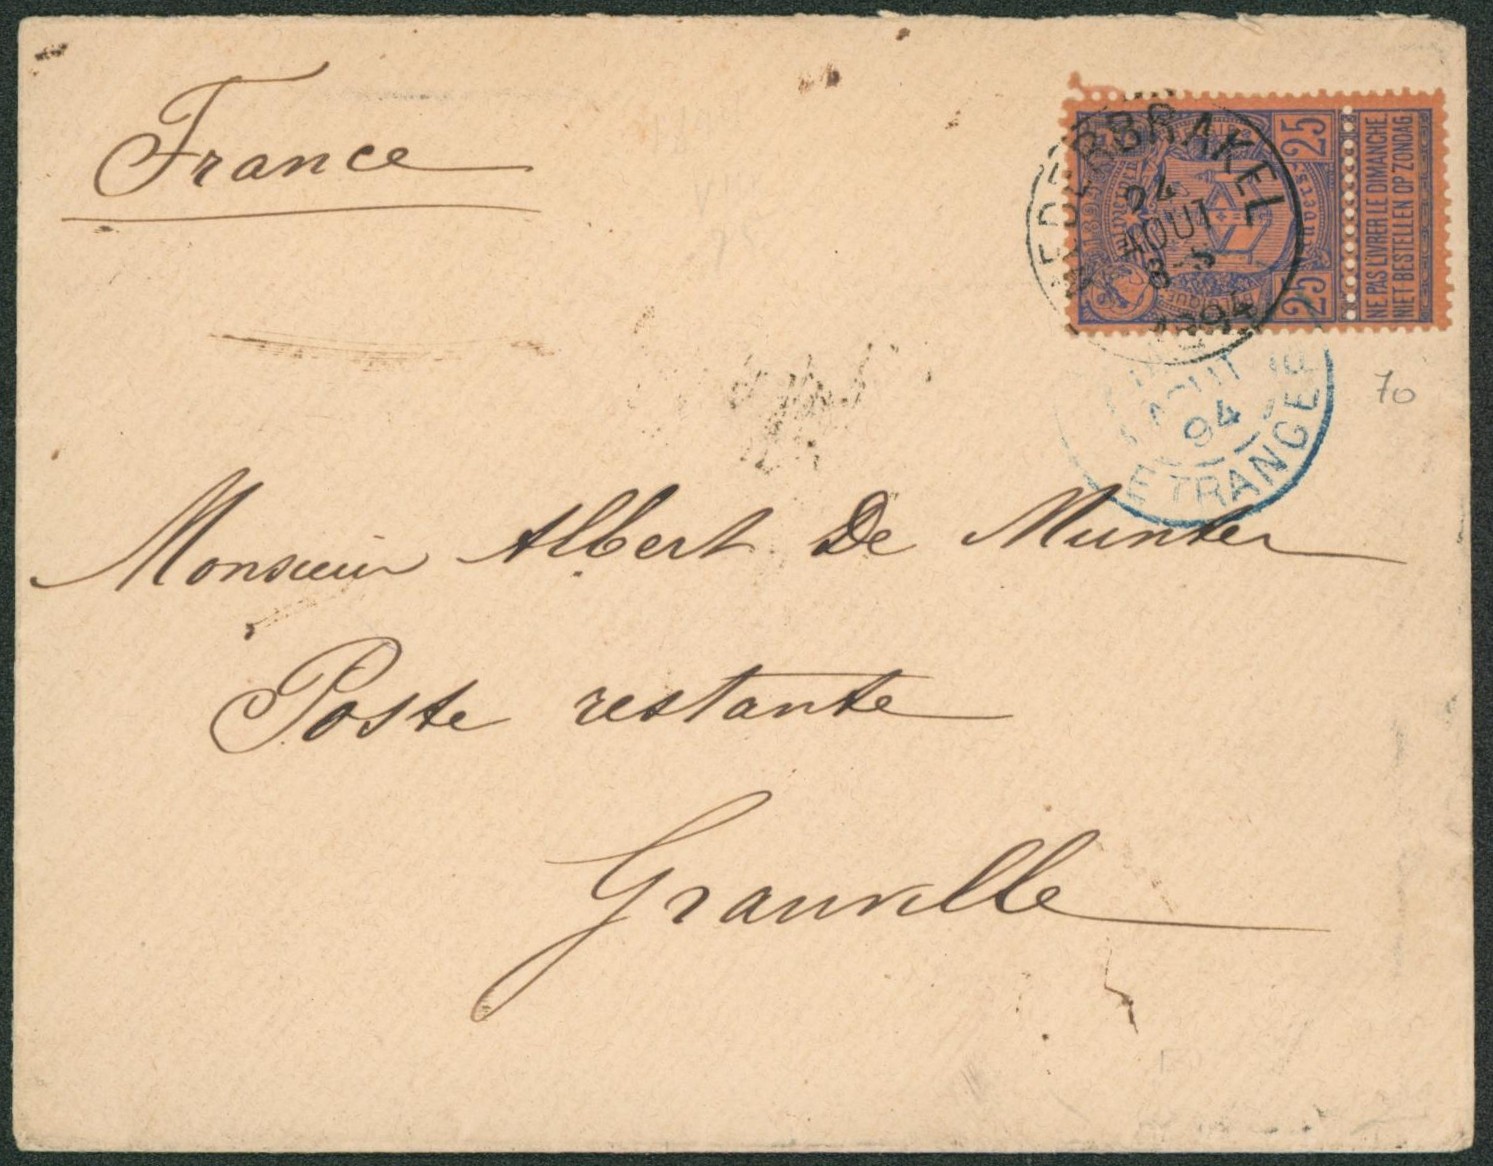 France
NEDERBRAKEL
24
AOUT
8-S
1894
25
25
Anvers
NE PAS LIVRER LE DIMANCHE
NIET BESTELLEN OP ZONDAG
AOUT
94
ETRANGER
70
Monsieur Albert De Munter
Poste restante
Granville